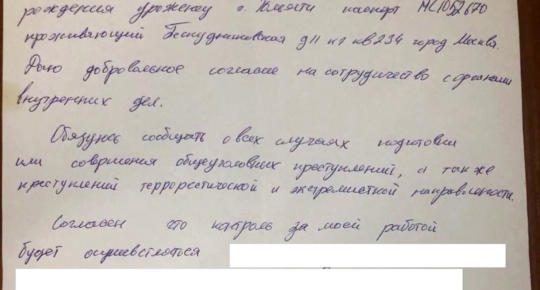 рождения уроженец г. Хмасти паспорт МС1052670
проживающий Бескудниковская д11 к1 кв234 город Москва.
Даю добровольное согласие на сотрудичество с органами
внутренних дел.
Обязуюсь сообщать о всех случаях подготовки
или совершения общеуголовных преступлений, а так же
преступлений террористической и экстремисткой направленности.
Согласен что контроль за моей работой
будет осуществляться